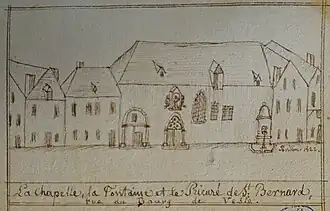 La Chapelle, la Fontaine et le Prieuré de St. Bernard,
rue du Bourg de Vesle.